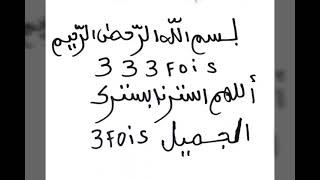 بسم الله الرّحمن الرّحيم
333 Fois
أللهم استرنا بسترك
الجميل 3 Fois